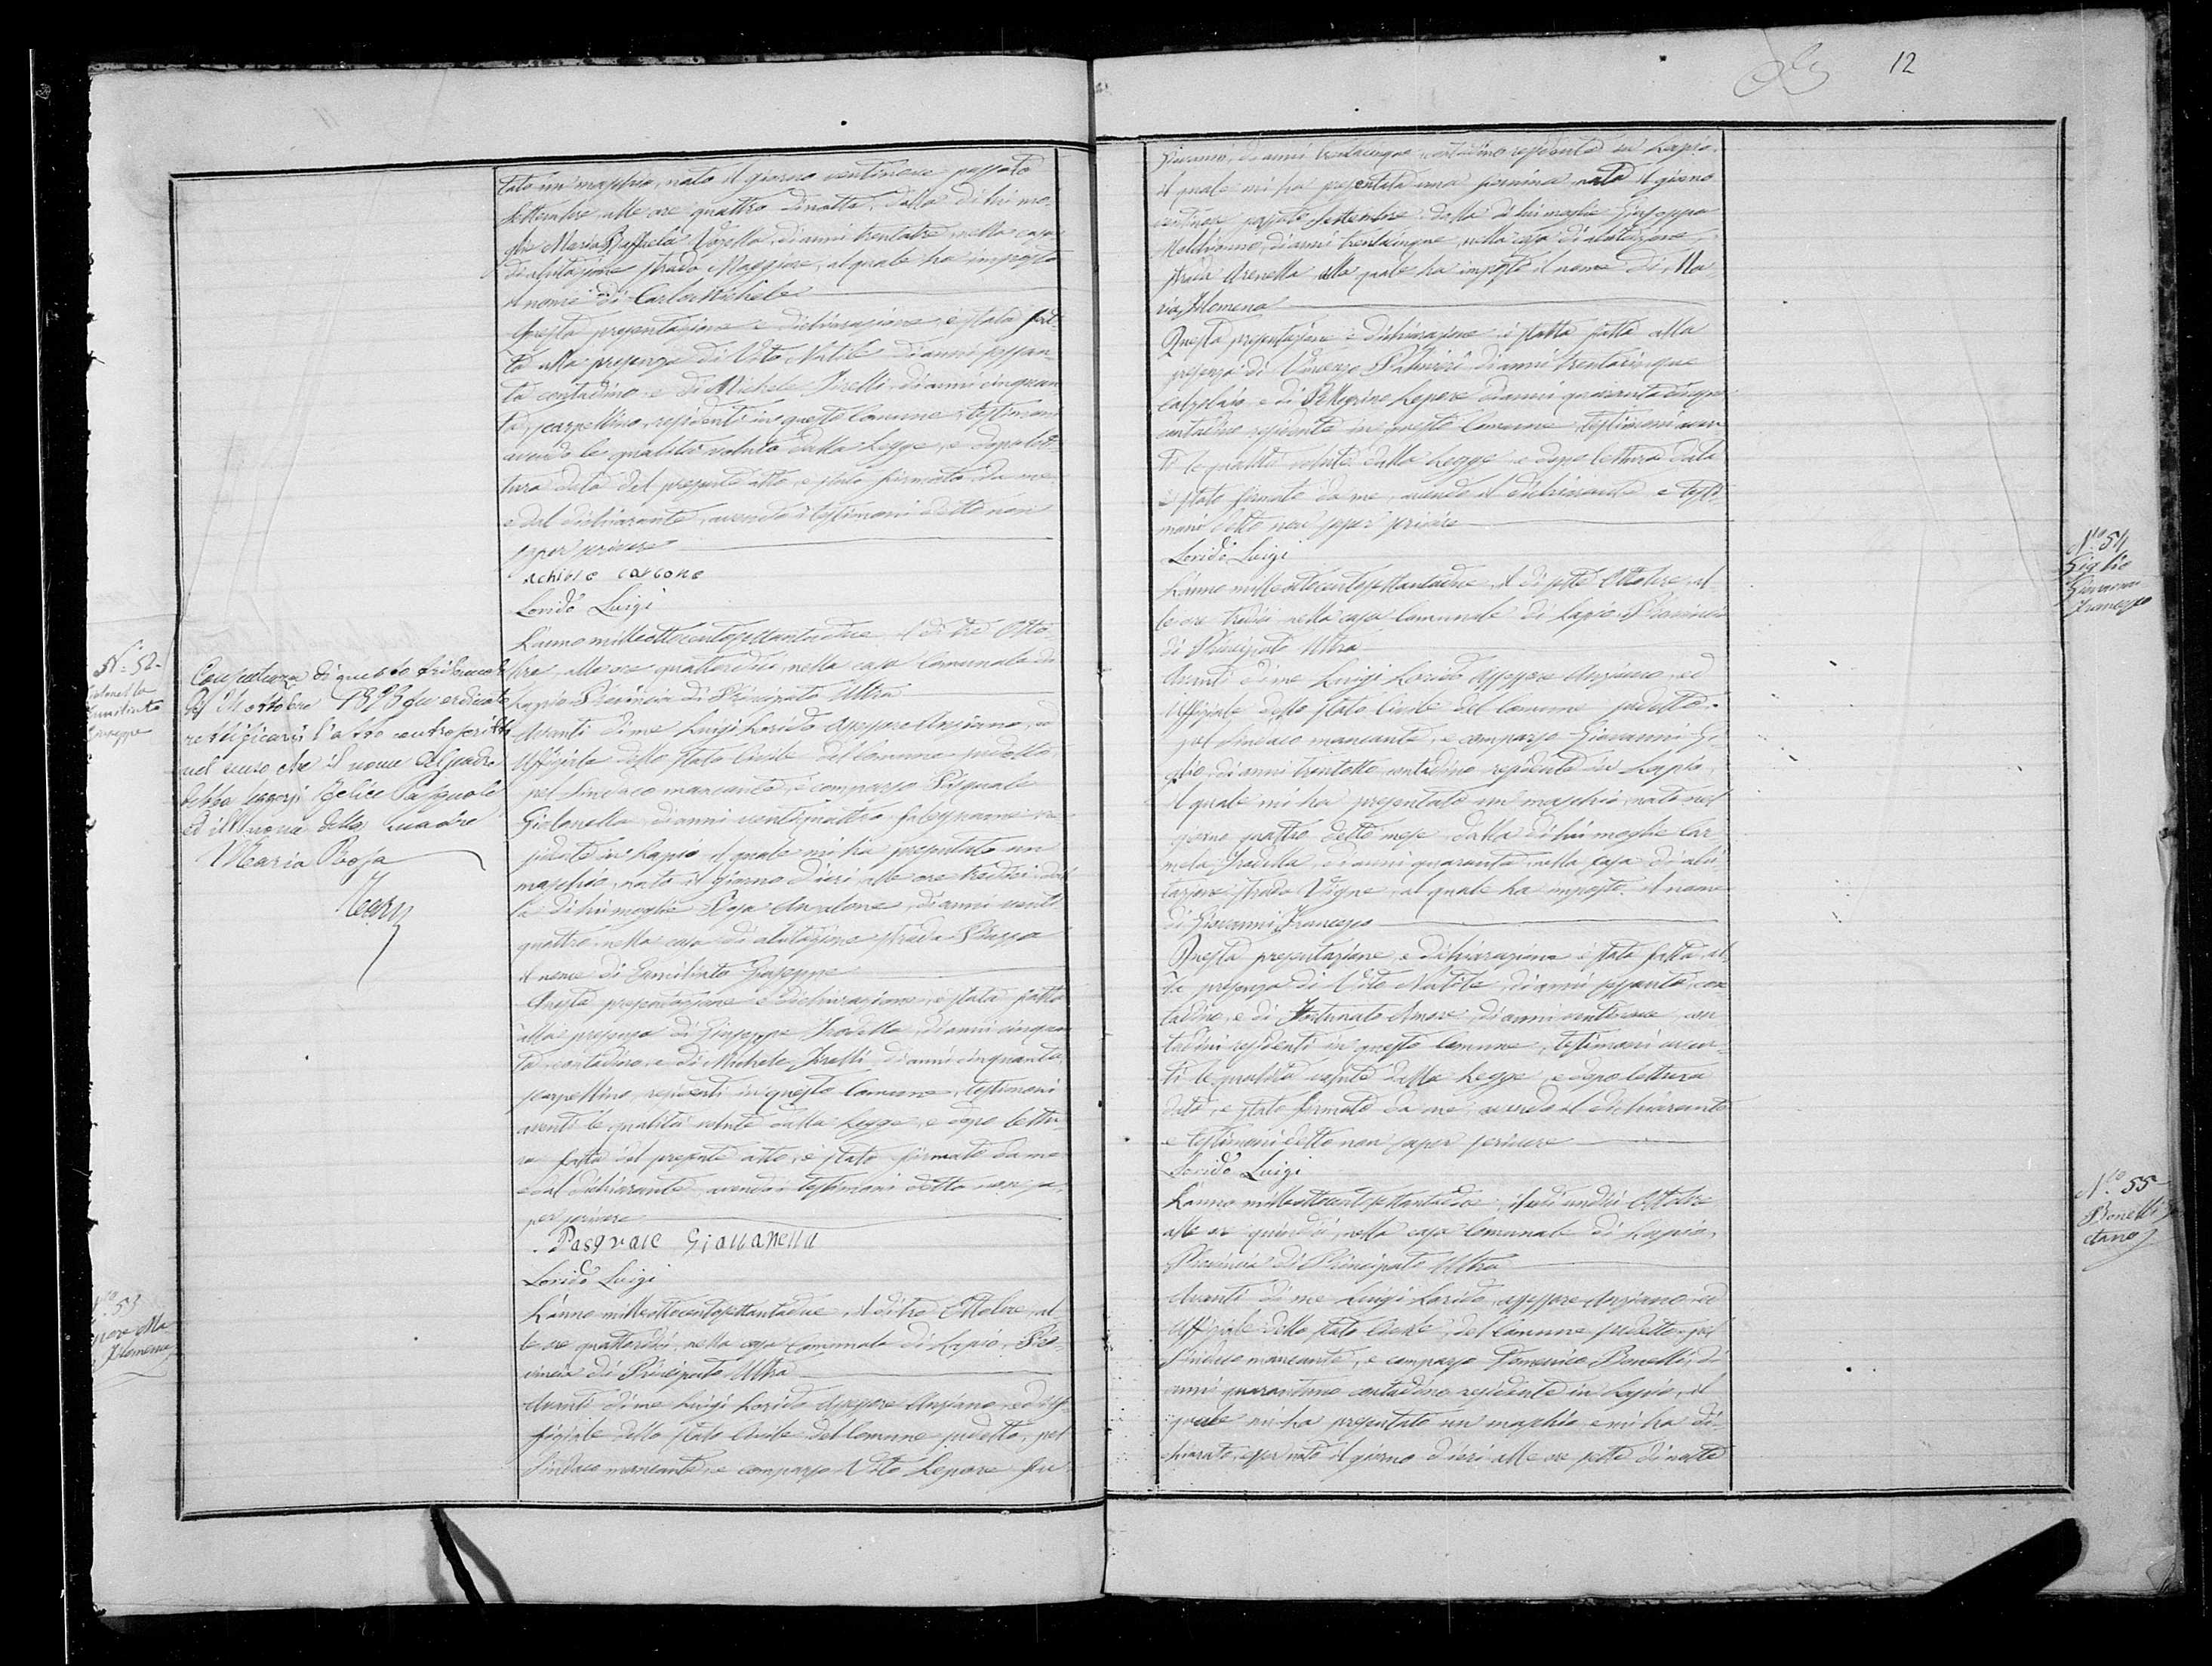 tato un maschio, nato il giorno ventinove passato
Settembre alle ore quattro di notte, dalla di lui mo-
glie Maria Raffaela Vozella, di anni trentatre, nella casa
di abitazione strada Maggiore, al quale ha imposto
il nome di Carlo Michele
Questa presentazione e dichiarazione, è stata fat-
ta alla presenza di Vito Natile di anni sessan-
ta contadino, e di Michele Jrelli, di anni cinquan
ta, scarpellino, residenti in questo Comune, testimoni
avendo le qualità volute dalla Legge, e dopo let-
tura data del presente atto, è stato firmato da me
e dal dichiarante, avendo i testimoni detto non
saper scrivere
carbone
Lorido Luigi
N.° 52
Giuseppe
di questo Tribunale
del 24 ottobre 1893 fu ordinato
rettificarsi l'atto controscritto
nel senso che il nome del padre
debba leggersi Felice Pasquale
ed il nome della madre
Maria Rosa
L'anno milleottocentosettantadue, il dì tre Otto-
bre, alle ore quattordici, nella casa Comunale di
Lapio Provincia di Principato Ultra
Avanti di me Luigi Lorido Assessore Anziano, ed
Uffiziale dello Stato Civile del Comune sudetto
pel Sindaco mancante, è comparso Pasquale
di anni ventiquattro falegname re-
sidente in Lapio il quale mi ha presentato un
maschio, nato il giorno d'ieri alle ore tredici dal-
la di lui moglie Rosa Anzalone, di anni venti
quattro, nella casa di abitazione strada Piazza
il nome di Giuseppe
Questa presentazione e dichiarazione, è stata fatta
alla presenza di Giuseppe di anni cinquan
ta contadino, e di Michele Jrelli, di anni cinquanta
scarpellino, residenti in questo Comune, testimoni
aventi le qualità volute dalla Legge, e dopo lettu-
ra fatta del presente atto, è stato firmato da me
e dal dichiarante avendo i testimoni detto non sa-
per scrivere
Pasquale
Lorido Luigi
53
Filomena
L'anno milleottocentosettantadue, il dì tre Ottobre, al
le ore quattordici, nella casa Comunale di Lapio, Pro-
vincia di Principato Ultra
Avanti di me Luigi Lorido Assessore Anziano, ed Uf-
fiziale dello Stato Civile del Comune sudetto, pel
Sindaco mancante, è comparso Vito Lepore fu
12
Giovanni, di anni trentacinque, contadino residente in Lapio,
il quale mi ha presentata una femina nata il giorno
ventinove passato Settembre dalla di lui moglie Giuseppa
di anni trentacinque, nella casa di abitazione,
strada Arenella, alla quale ha imposto il nome di Ma
ria Filomena
Questa presentazione e dichiarazione è stata fatta alla
presenza di Vincenzo di anni trentacinque
calzolaio, e di Pellegrino Lepore di anni quarantacinque
contadino residente in questo Comune, testimoni aven
ti le qualità volute dalla Legge e dopo lettura data
è stato firmato da me, avendo il dichiarante e testi-
moni detto non saper scrivere
Lorido Luigi
N.° 54
Giglio
Giovanni
Francesco
L'anno milleottocentosettantadue, il dì sette Ottobre, al-
le ore tredici, nella casa Comunale di Lapio, Provincia
di Principato Ultra
Avanti di me Luigi Lorido Assessore Anziano, ed
Uffiziale dello Stato Civile del Comune sudetto
pel Sindaco mancante, è comparso Giovanni Gi-
glio, di anni trentotto, contadino residente in Lapio,
il quale mi ha presentato un maschio, nato nel
giorno quattro detto mese, dalla di lui moglie Car
mela di anni quaranta, nella casa di abi
tazione strada Vigne, al quale ha imposto il nome
di Giovanni Francesco
Questa presentazione, e dichiarazione è stata fatta al-
la presenza di Vito Natile, di anni sessanta, con
tadino, e di Fortunato Amore, di anni ventinove, con
tadini residenti in questo Comune, testimoni aven-
ti le qualità volute dalla Legge, e dopo lettura
data, è stato firmato da me, avendo il dichiarante
e testimoni detto non saper scrivere
Lorido Luigi
N.° 55
Bonelli
L'anno milleottocentosettantadue, il dì undici Ottobre
alle ore quindici, nella casa Comunale di Lapio,
Provincia di Principato Ultra
Avanti di me Luigi Lorido, Assessore Anziano, ed
Uffiziale dello Stato Civile, del Comune sudetto, pel
Sindaco mancante, è comparso Domenico Bonelli, di
anni quarantuno contadino residente in Lapio, il
quale mi ha presentato un maschio e mi ha di-
chiarato, esser nato il giorno d'ieri alle ore sette di notte